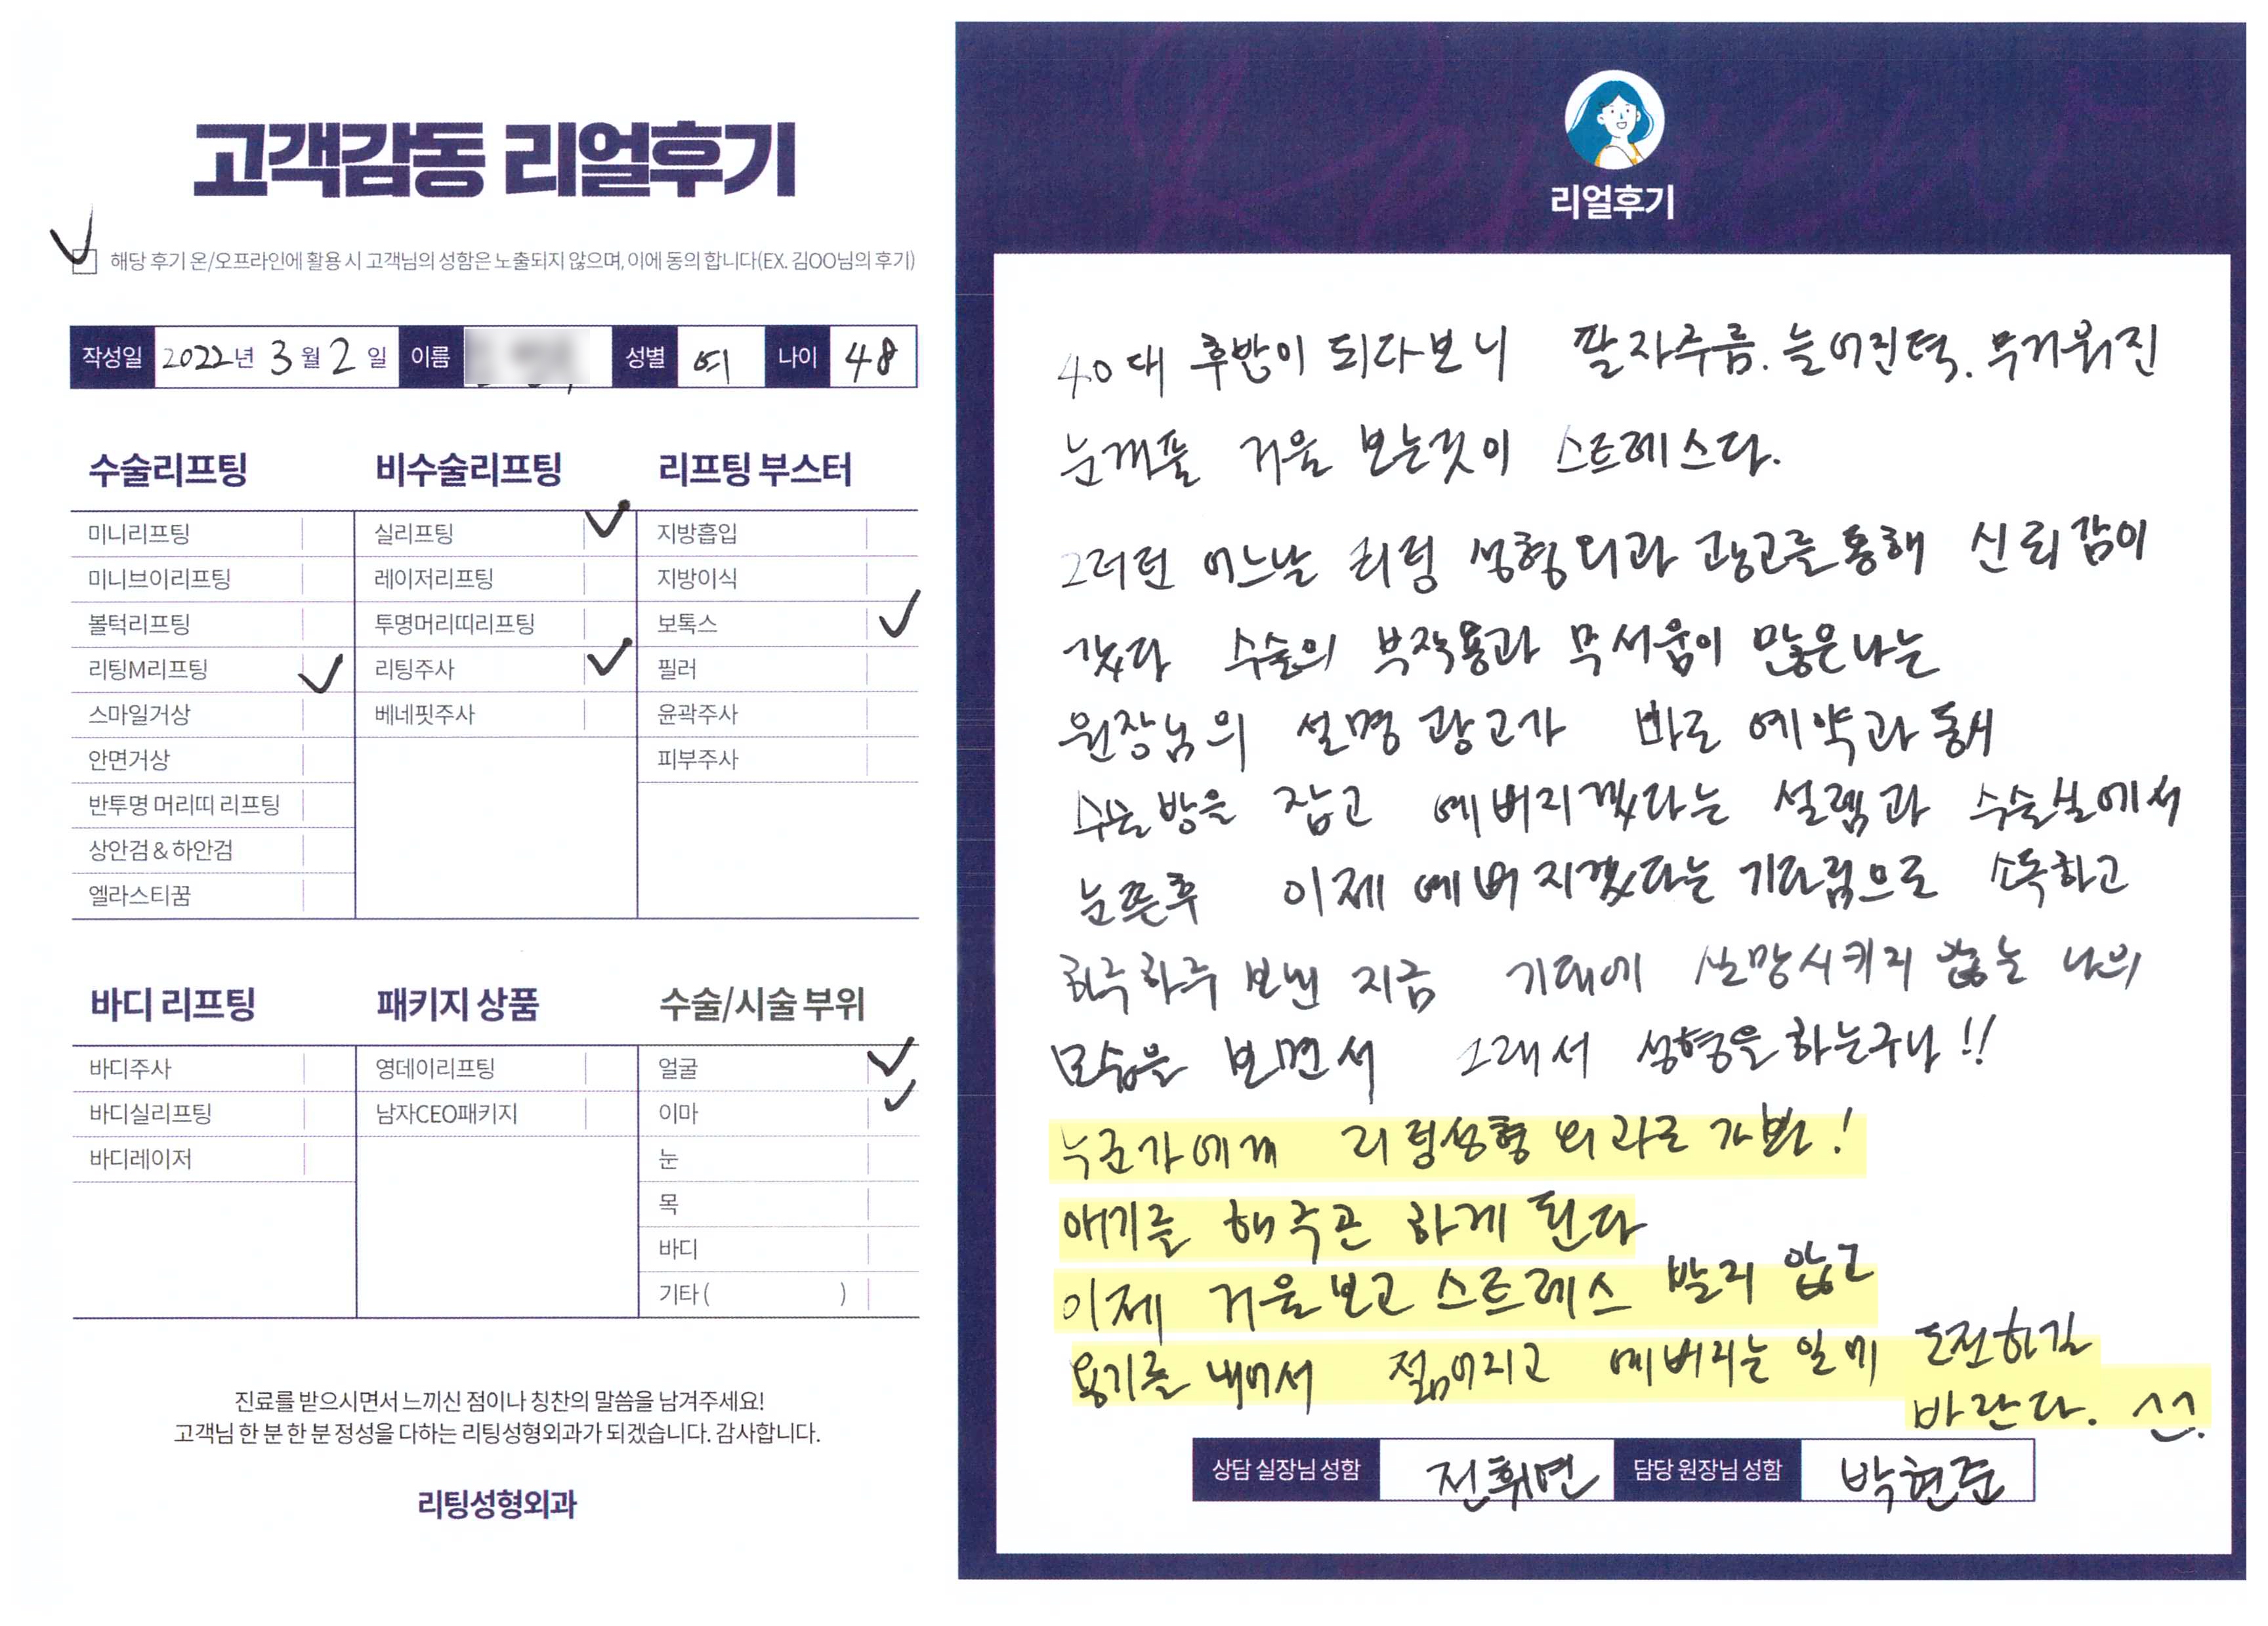 고객감동 리얼후기
해당 후기 온/오프라인에 활용 시 고객님의 성함은 노출되지 않으며, 이에 동의 합니다(EX. 김OO님의 후기)
작성일 2022년 3월 2일 이름 성별 여 나이 48
수술리프팅
미니리프팅
미니브이리프팅
볼턱리프팅
리팅M리프팅
스마일거상
안면거상
반투명 머리띠 리프팅
상안검 & 하안검
엘라스티꿈
비수술리프팅
실리프팅
레이저리프팅
투명머리띠리프팅
리팅주사
베네핏주사
리프팅 부스터
지방흡입
지방이식
보톡스
필러
윤곽주사
피부주사
바디 리프팅
바디주사
바디실리프팅
바디레이저
패키지 상품
영데이리프팅
남자CEO패키지
수술/시술 부위
얼굴
이마
눈
목
바디
기타 ( )
진료를 받으시면서 느끼신 점이나 칭찬의 말씀을 남겨주세요!
고객님 한 분 한 분 정성을 다하는 리팅성형외과가 되겠습니다. 감사합니다.
리팅성형외과
리얼후기
40대 후반이 되다보니 팔자주름. 늘어진턱. 무거워진
눈꺼풀 거울 보는것이 스트레스다.
그러던 어느날 리팅 성형외과 광고를 통해 신뢰감이
갔다 수술의 부작용과 무서움이 많은나는
원장님의 설명 광고가 바로 예약과 동시
수술방을 잡고 예버지겠다는 설렘과 수술실에서
눈뜬후 이제 예버지겠다는 기다림으로 소독하고
하루하루 보낸 지금 기대에 실망시키지 않는 나의
모습을 보면서 그래서 성형을 하는구나!!
누군가에게 리팅성형외과로 가봐!
얘기를 해주곤 하게 된다
이제 거울보고 스트레스 받지 않고
용기를 내어서 젊어지고 예버지는 일에 도전하길
바란다. ^^
상담 실장님 성함 전휘면 담당 원장님 성함 박현준